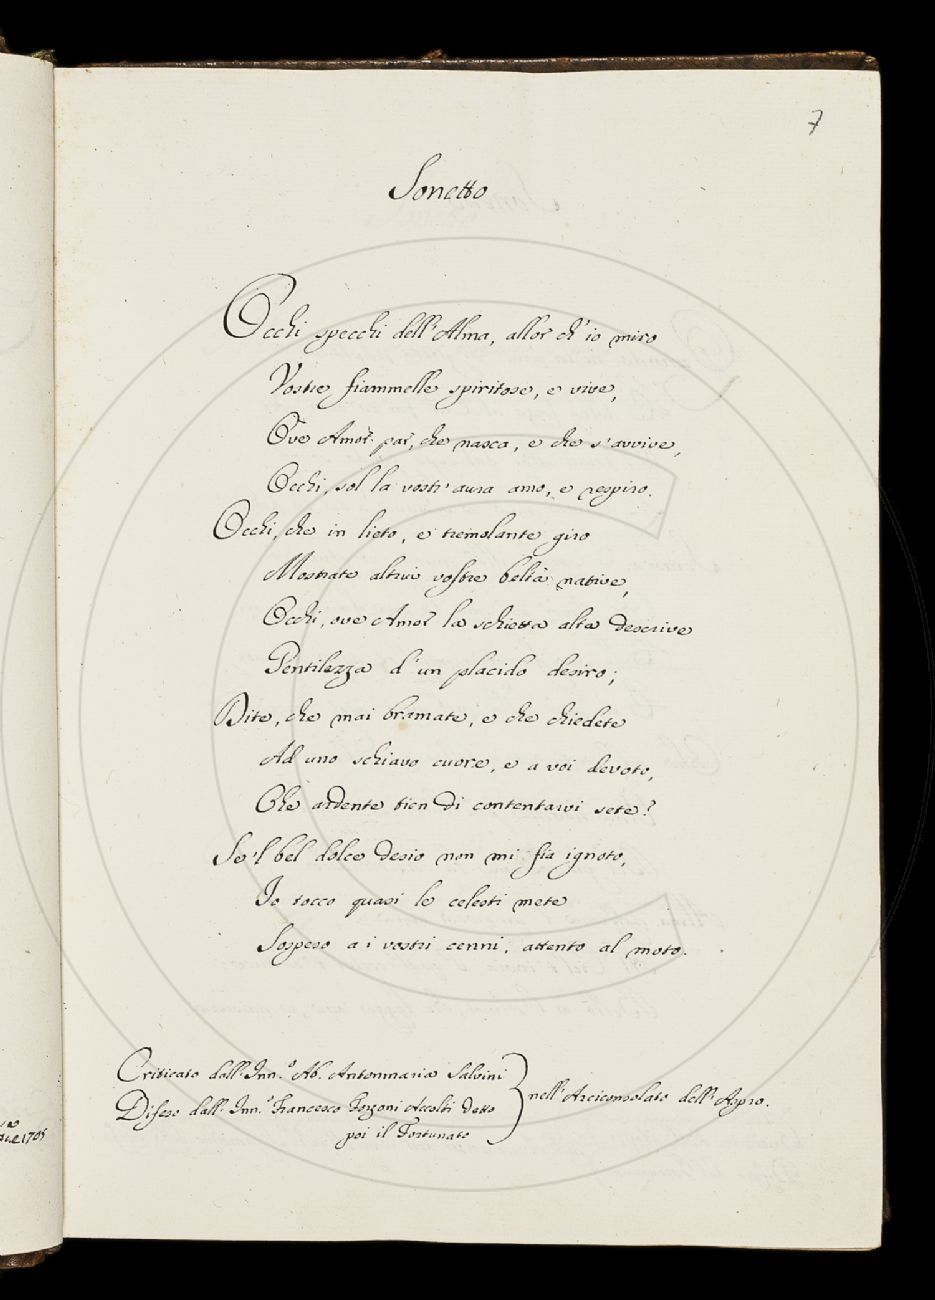 7
Sonetto
Occhi specchi dell'Alma, allor ch'io miro
Vostre fiammelle spiritose, e vive,
Ove Amor par, che nasca, e che s'avvive,
Occhi, sol la vostr'aura amo, e respiro.
Occhi, che in lieto, e tremolante giro
Mostrate altrui vostre beltà native,
Occhi, ove Amor la schietta alta descrive
Gentilezza d'un placido desiro;
Dite, che mai bramate, e che chiedete
Ad uno schiavo cuore, e a voi devoto,
Che ardente tien di contentarvi sete?
Se'l bel dolce desio non mi fia ignoto,
Io tocco quasi le celesti mete
Sospeso a i vostri cenni, attento al moto.
Criticato dall'Inn.º Ab. Antonmaria Salvini
Difeso dall'Inn.º Francesco Forzoni Accolti detto
poi il Fortunato
nell'Arciconsolato dell'Aspro.
1705